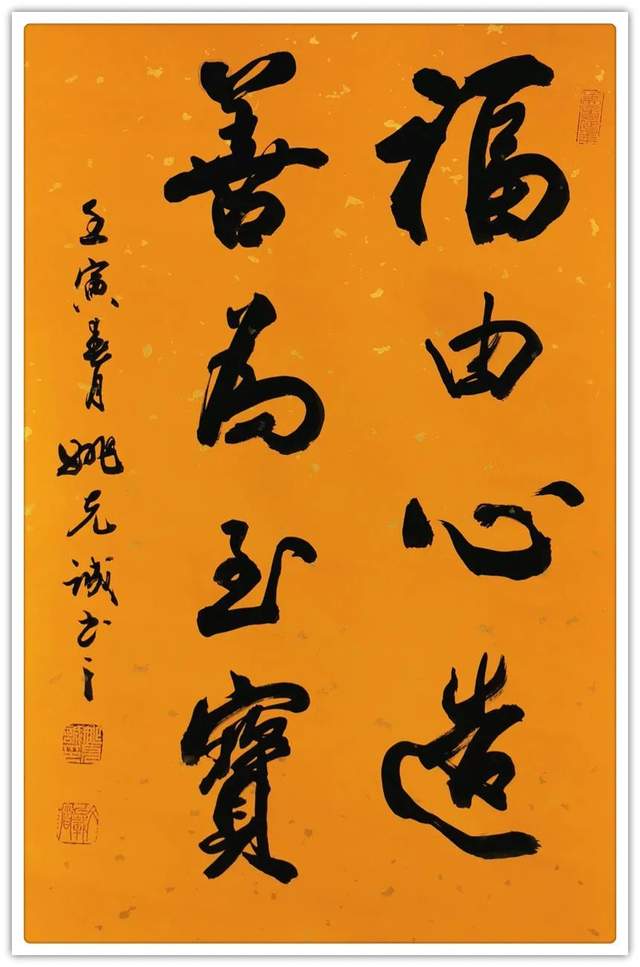 福由心造
善為至寶
壬寅春月姚克誠书之